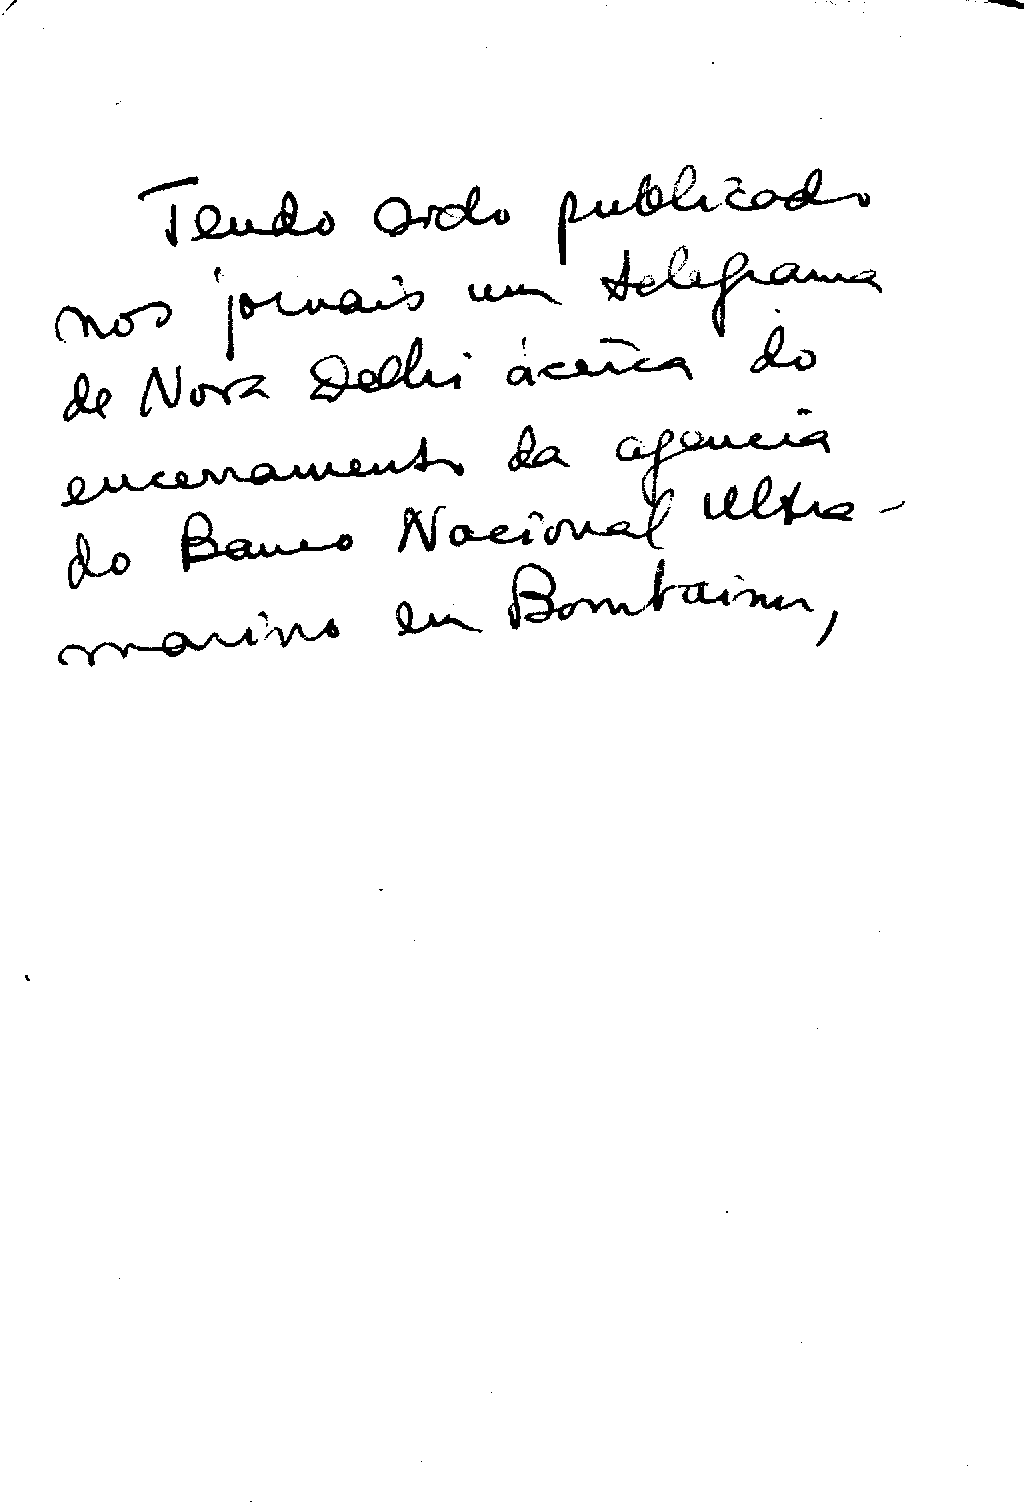 Tendo sido publicado
nos jornais um telegrama
de Nova Delhi ácerca do
encerramento da agencia
do Banco Nacional Ultra-
marino em Bombaim,